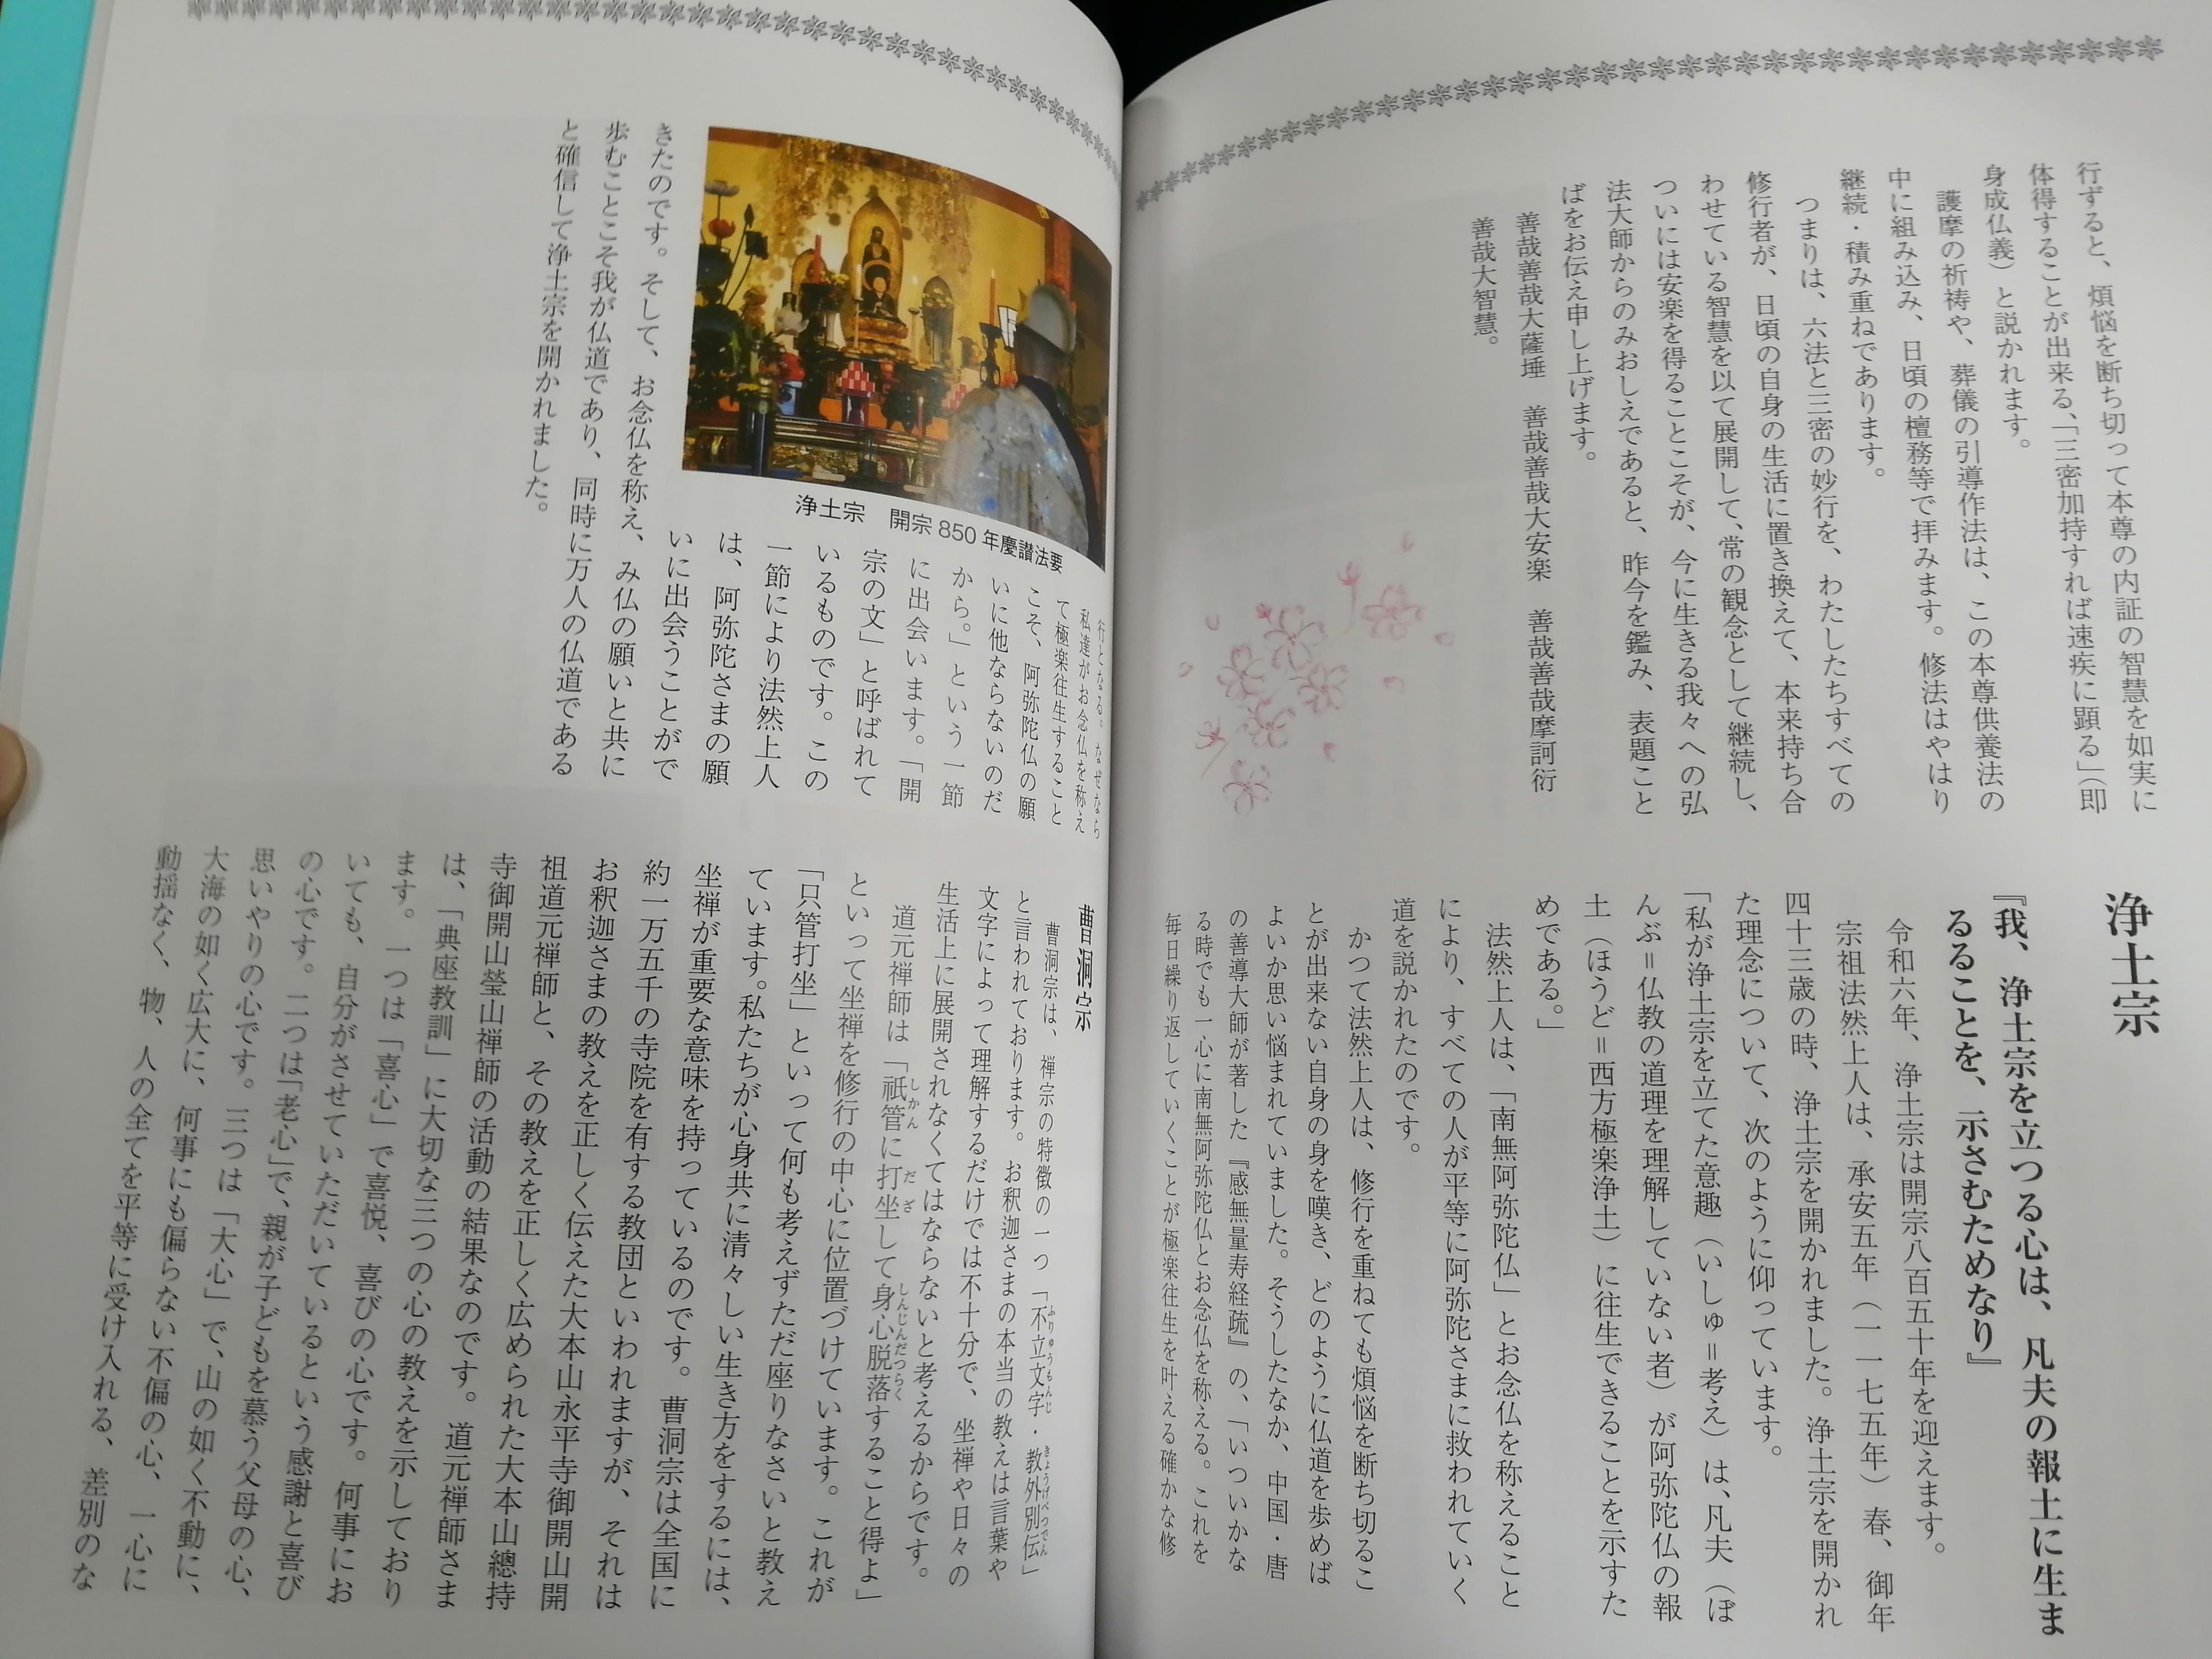 行ずると、煩悩を断ち切って本尊の内証の智慧を如実に
体得することが出来る、「三密加持すれば速疾に顕る」（即
身成仏義）と説かれます。
護摩の祈祷や、葬儀の引導作法は、この本尊供養法の
中に組み込み、日頃の檀務等で拝みます。修法はやはり
継続・積み重ねであります。
つまりは、六法と三密の妙行を、わたしたちすべての
修行者が、日頃の自身の生活に置き換えて、本来持ち合
わせている智慧を以て展開して、常の観念として継続し、
ついには安楽を得ることこそが、今に生きる我々への弘
法大師からのみおしえであると、昨今を鑑み、表題こと
ばをお伝え申し上げます。
善哉善哉大薩埵　善哉善哉大安楽　善哉善哉摩訶衍
善哉大智慧。
浄土宗
『我、浄土宗を立つる心は、凡夫の報土に生ま
るることを、示さむためなり』
令和六年、浄土宗は開宗八百五十年を迎えます。
宗祖法然上人は、承安五年（一一七五年）春、御年
四十三歳の時、浄土宗を開かれました。浄土宗を開かれ
た理念について、次のように仰っています。
「私が浄土宗を立てた意趣（いしゅ＝考え）は、凡夫（ぼ
んぶ＝仏教の道理を理解していない者）が阿弥陀仏の報
土（ほうど＝西方極楽浄土）に往生できることを示すた
めである。」
法然上人は、「南無阿弥陀仏」とお念仏を称えること
により、すべての人が平等に阿弥陀さまに救われていく
道を説かれたのです。
かつて法然上人は、修行を重ねても煩悩を断ち切るこ
とが出来ない自身の身を嘆き、どのように仏道を歩めば
よいか思い悩まれていました。そうしたなか、中国・唐
の善導大師が著した『感無量寿経疏』の、「いついかな
る時でも一心に南無阿弥陀仏とお念仏を称える。これを
毎日繰り返していくことが極楽往生を叶える確かな修
行となる。なぜなら
私達がお念仏を称え
て極楽往生すること
こそ、阿弥陀仏の願
いに他ならないのだ
から。」という一節
に出会います。「開
宗の文」と呼ばれて
いるものです。この
一節により法然上人
は、阿弥陀さまの願
いに出会うことがで
きたのです。そして、お念仏を称え、み仏の願いと共に
歩むことこそ我が仏道であり、同時に万人の仏道である
と確信して浄土宗を開かれました。
浄土宗　開宗850年慶讃法要
曹洞宗
曹洞宗は、禅宗の特徴の一つ「不立文字・教外別伝」
ふりゅうもんじ　きょうげべつでん
と言われております。お釈迦さまの本当の教えは言葉や
文字によって理解するだけでは不十分で、坐禅や日々の
生活上に展開されなくてはならないと考えるからです。
道元禅師は「祇管に打坐して身心脱落することを得よ」
しかん　だざ　しんじんだつらく
といって坐禅を修行の中心に位置づけています。これが
「只管打坐」といって何も考えずただ座りなさいと教え
ています。私たちが心身共に清々しい生き方をするには、
坐禅が重要な意味を持っているのです。曹洞宗は全国に
約一万五千の寺院を有する教団といわれますが、それは
お釈迦さまの教えを正しく伝えた大本山永平寺御開山開
祖道元禅師と、その教えを正しく広められた大本山總持
寺御開山瑩山禅師の活動の結果なのです。道元禅師さま
は、「典座教訓」に大切な三つの心の教えを示しており
ます。一つは「喜心」で喜悦、喜びの心です。何事にお
いても、自分がさせていただいているという感謝と喜び
の心です。二つは「老心」で、親が子どもを慕う父母の心、
思いやりの心です。三つは「大心」で、山の如く不動に、
大海の如く広大に、何事にも偏らない不偏の心、一心に
動揺なく、物、人の全てを平等に受け入れる、差別のな